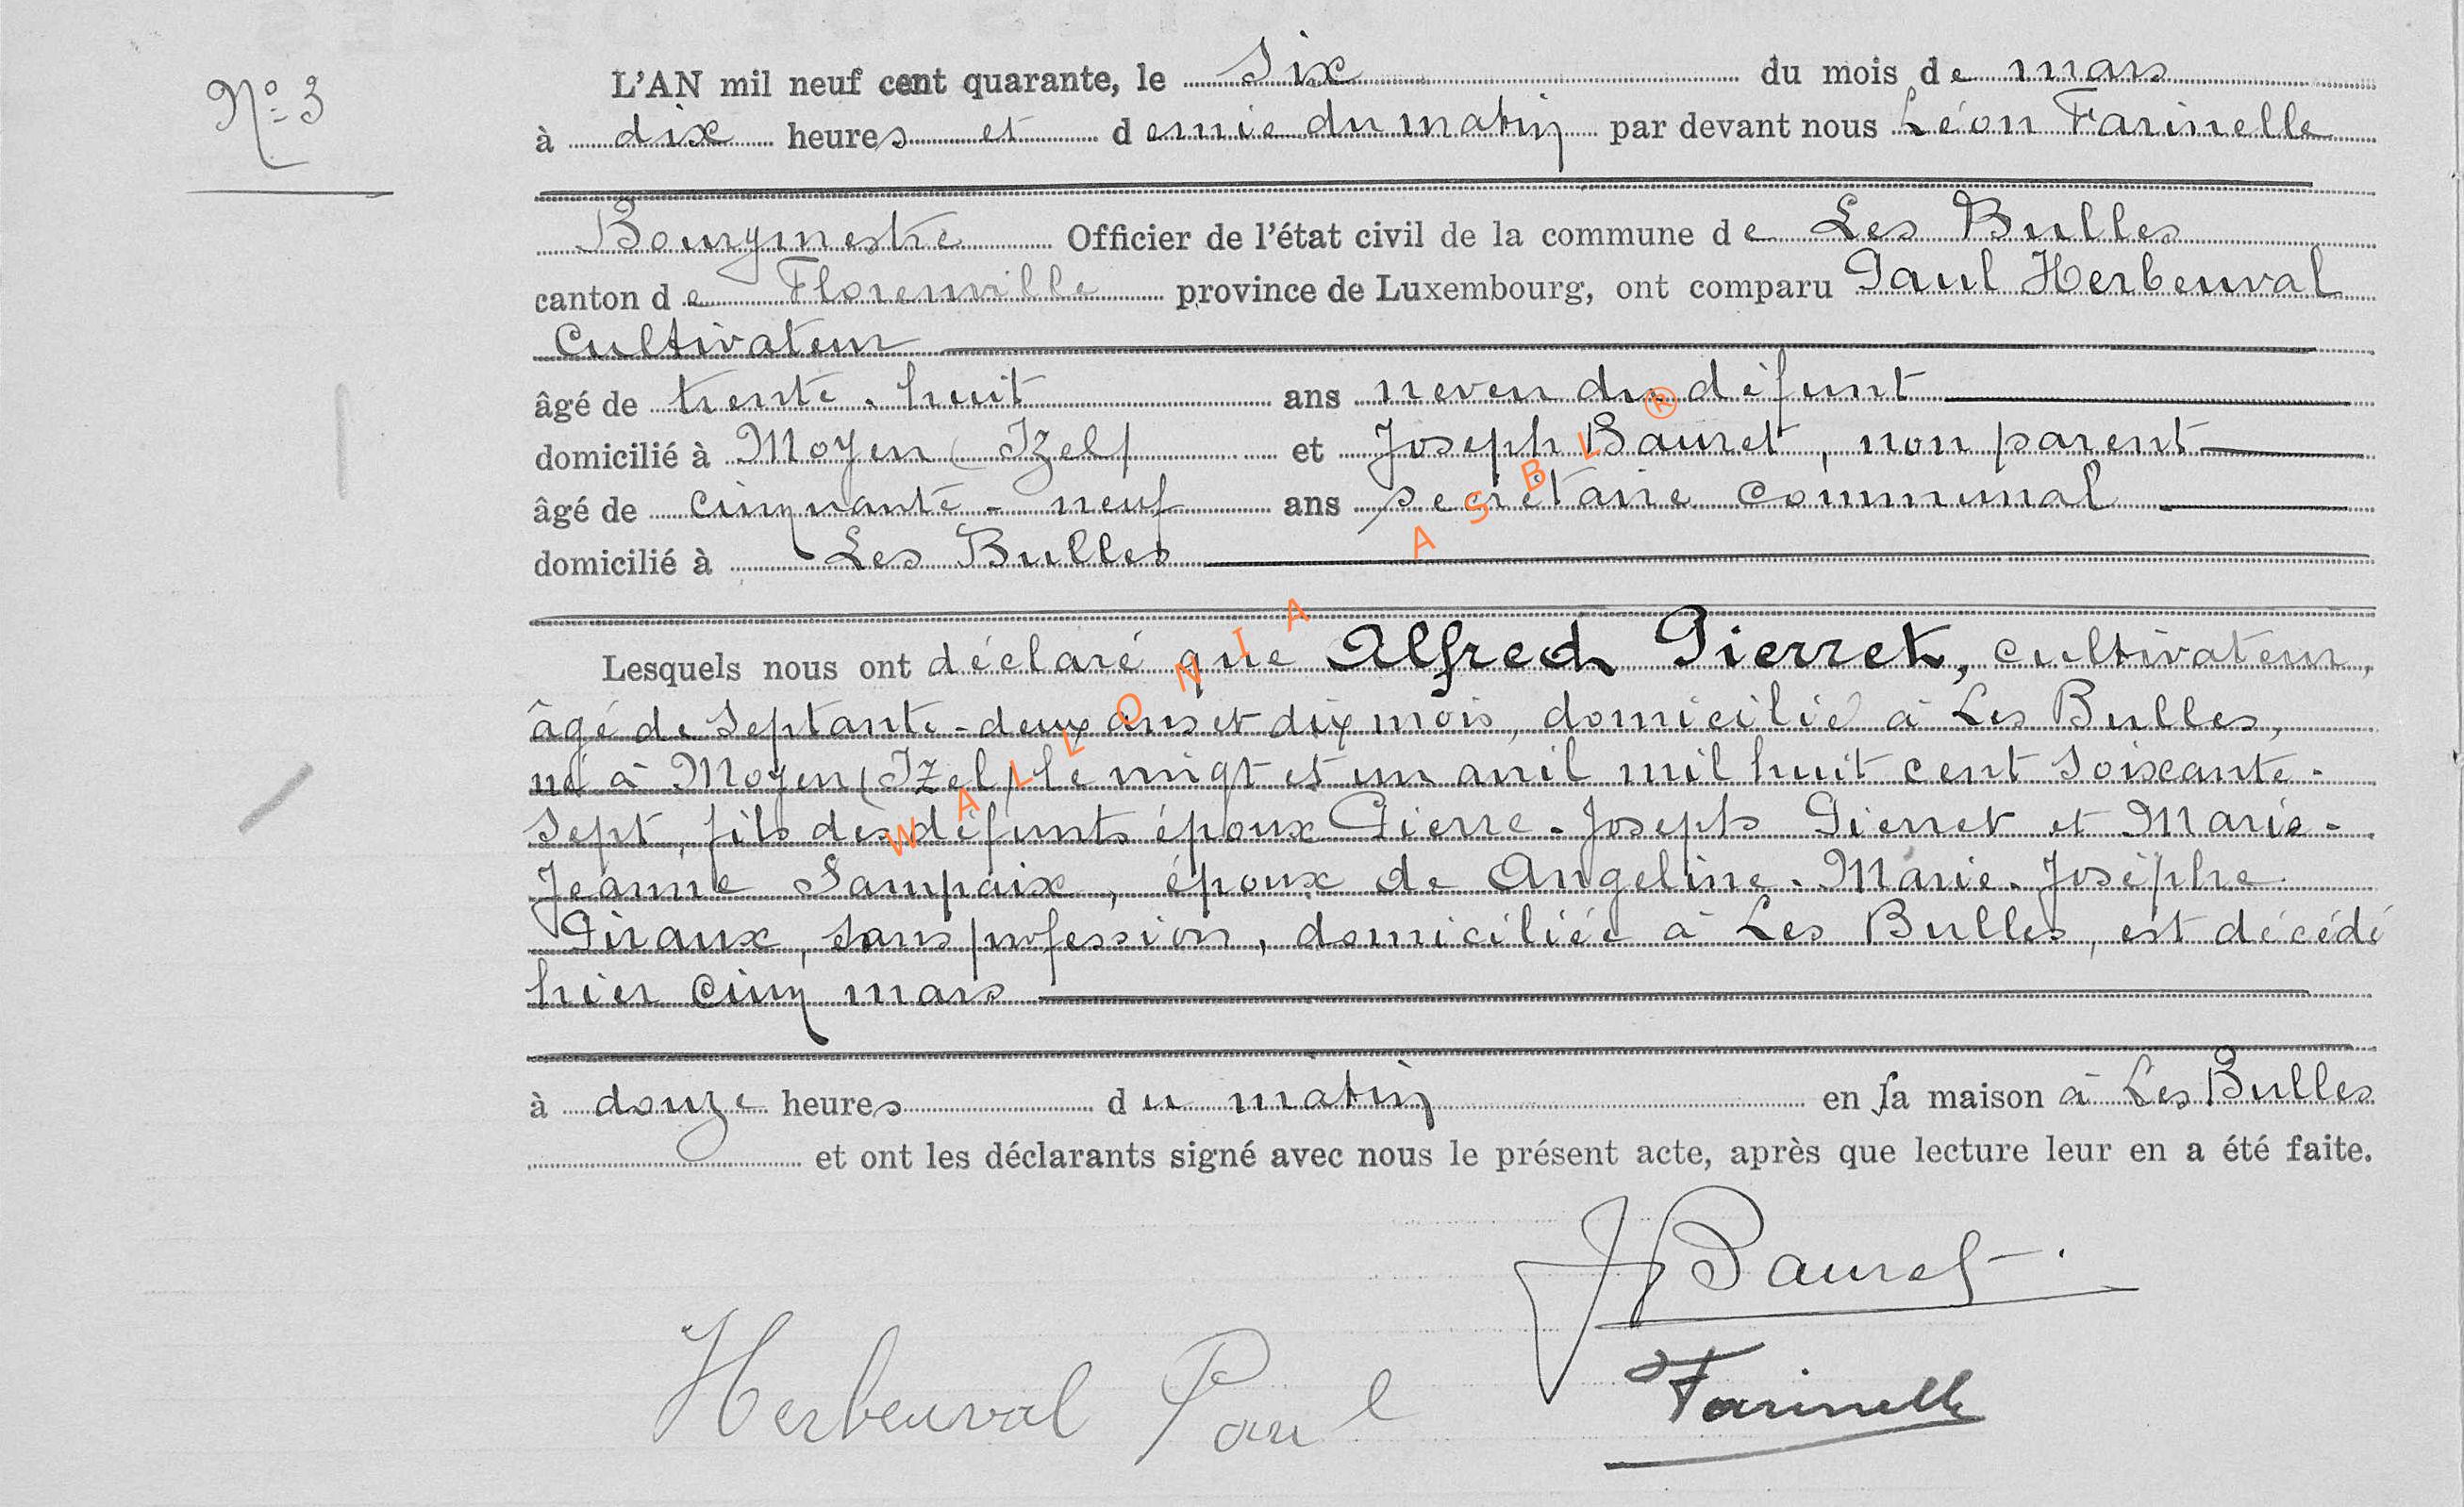 N° 3
L'AN mil neuf cent quarante, le Six du mois de mars
à dix heures et demie du matin par devant nous Léon Farinelle
Bourgmestre Officier de l'état civil de la commune de Les Bulles
canton de Florenville province de Luxembourg, ont comparu Paul Herbeuval
Cultivateur
âgé de trente-huit ans neveu du défunt
domicilié à Moyen (Izel) et Joseph Bauret, non parent
âgé de cinquante-neuf ans secrétaire communal
domicilié à Les Bulles
Lesquels nous ont déclaré que Alfred Pierret, cultivateur,
âgé de Septante-deux ans et dix mois, domicilié à Les Bulles,
né à Moyen (Izel) le vingt et un avril mil huit cent soixante-
sept, fils des défunts époux Pierre-Joseph Pierret et Marie-
Jeanne Sampaix, époux de Angeline-Marie-Josèphe
Piraux, sans profession, domiciliée à Les Bulles, est décédé
hier cinq mars
à douze heures du matin en sa maison à Les Bulles
et ont les déclarants signé avec nous le présent acte, après que lecture leur en a été faite.
J Bauret
Herbeuval Paul
Farinelle
WALLONIA ASBL ®